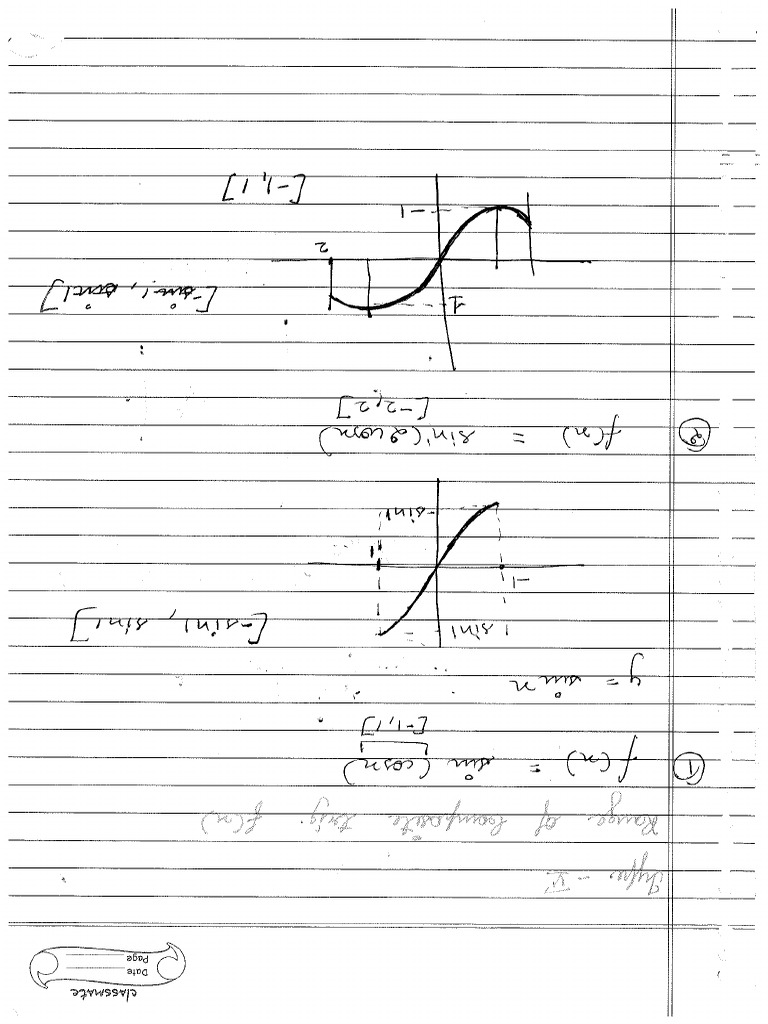 classmate
Date
Page
Type - V
Range of Composite trig. f(n)
① f(n) = sin (cosn)
[-1,1]
y = sin n
1 sin1
[-sin1, sin1]
-1
1
-sin1
② f(n) = sin(2cosn)
[-2,2]
1
[-sin1, sin1]
2
-1
[-1,1]